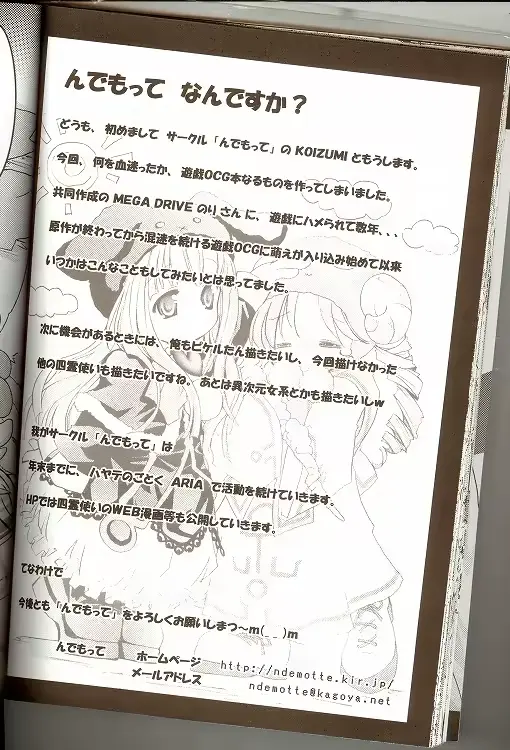 んでもって なんですか？
どうも、初めまして サークル「んでもって」の KOIZUMI ともうします。
今回、何を血迷ったか、遊戯OCG本なるものを作ってしまいました。
共同作成の MEGA DRIVE のりさんに、遊戯にハメられて数年、、、
原作が終わってから混迷を続ける遊戯OCGに萌えが入り込み始めて以来
いつかはこんなこともしてみたいとは思ってました。
次に機会があるときには、俺もピケルたん描きたいし、今回描けなかった
他の四霊使いも描きたいですね。あとは異次元女系とかも描きたいしw
我がサークル「んでもって」は
年末までに、ハヤテのごとく ARIA で活動を続けていきます。
HPでは四霊使いのWEB漫画等も公開していきます。
てなわけで
今後とも「んでもって」をよろしくお願いしまつ～m(_ _)m
んでもって ホームページ http://ndemotte.kir.jp/
メールアドレス ndemotte@kagoya.net